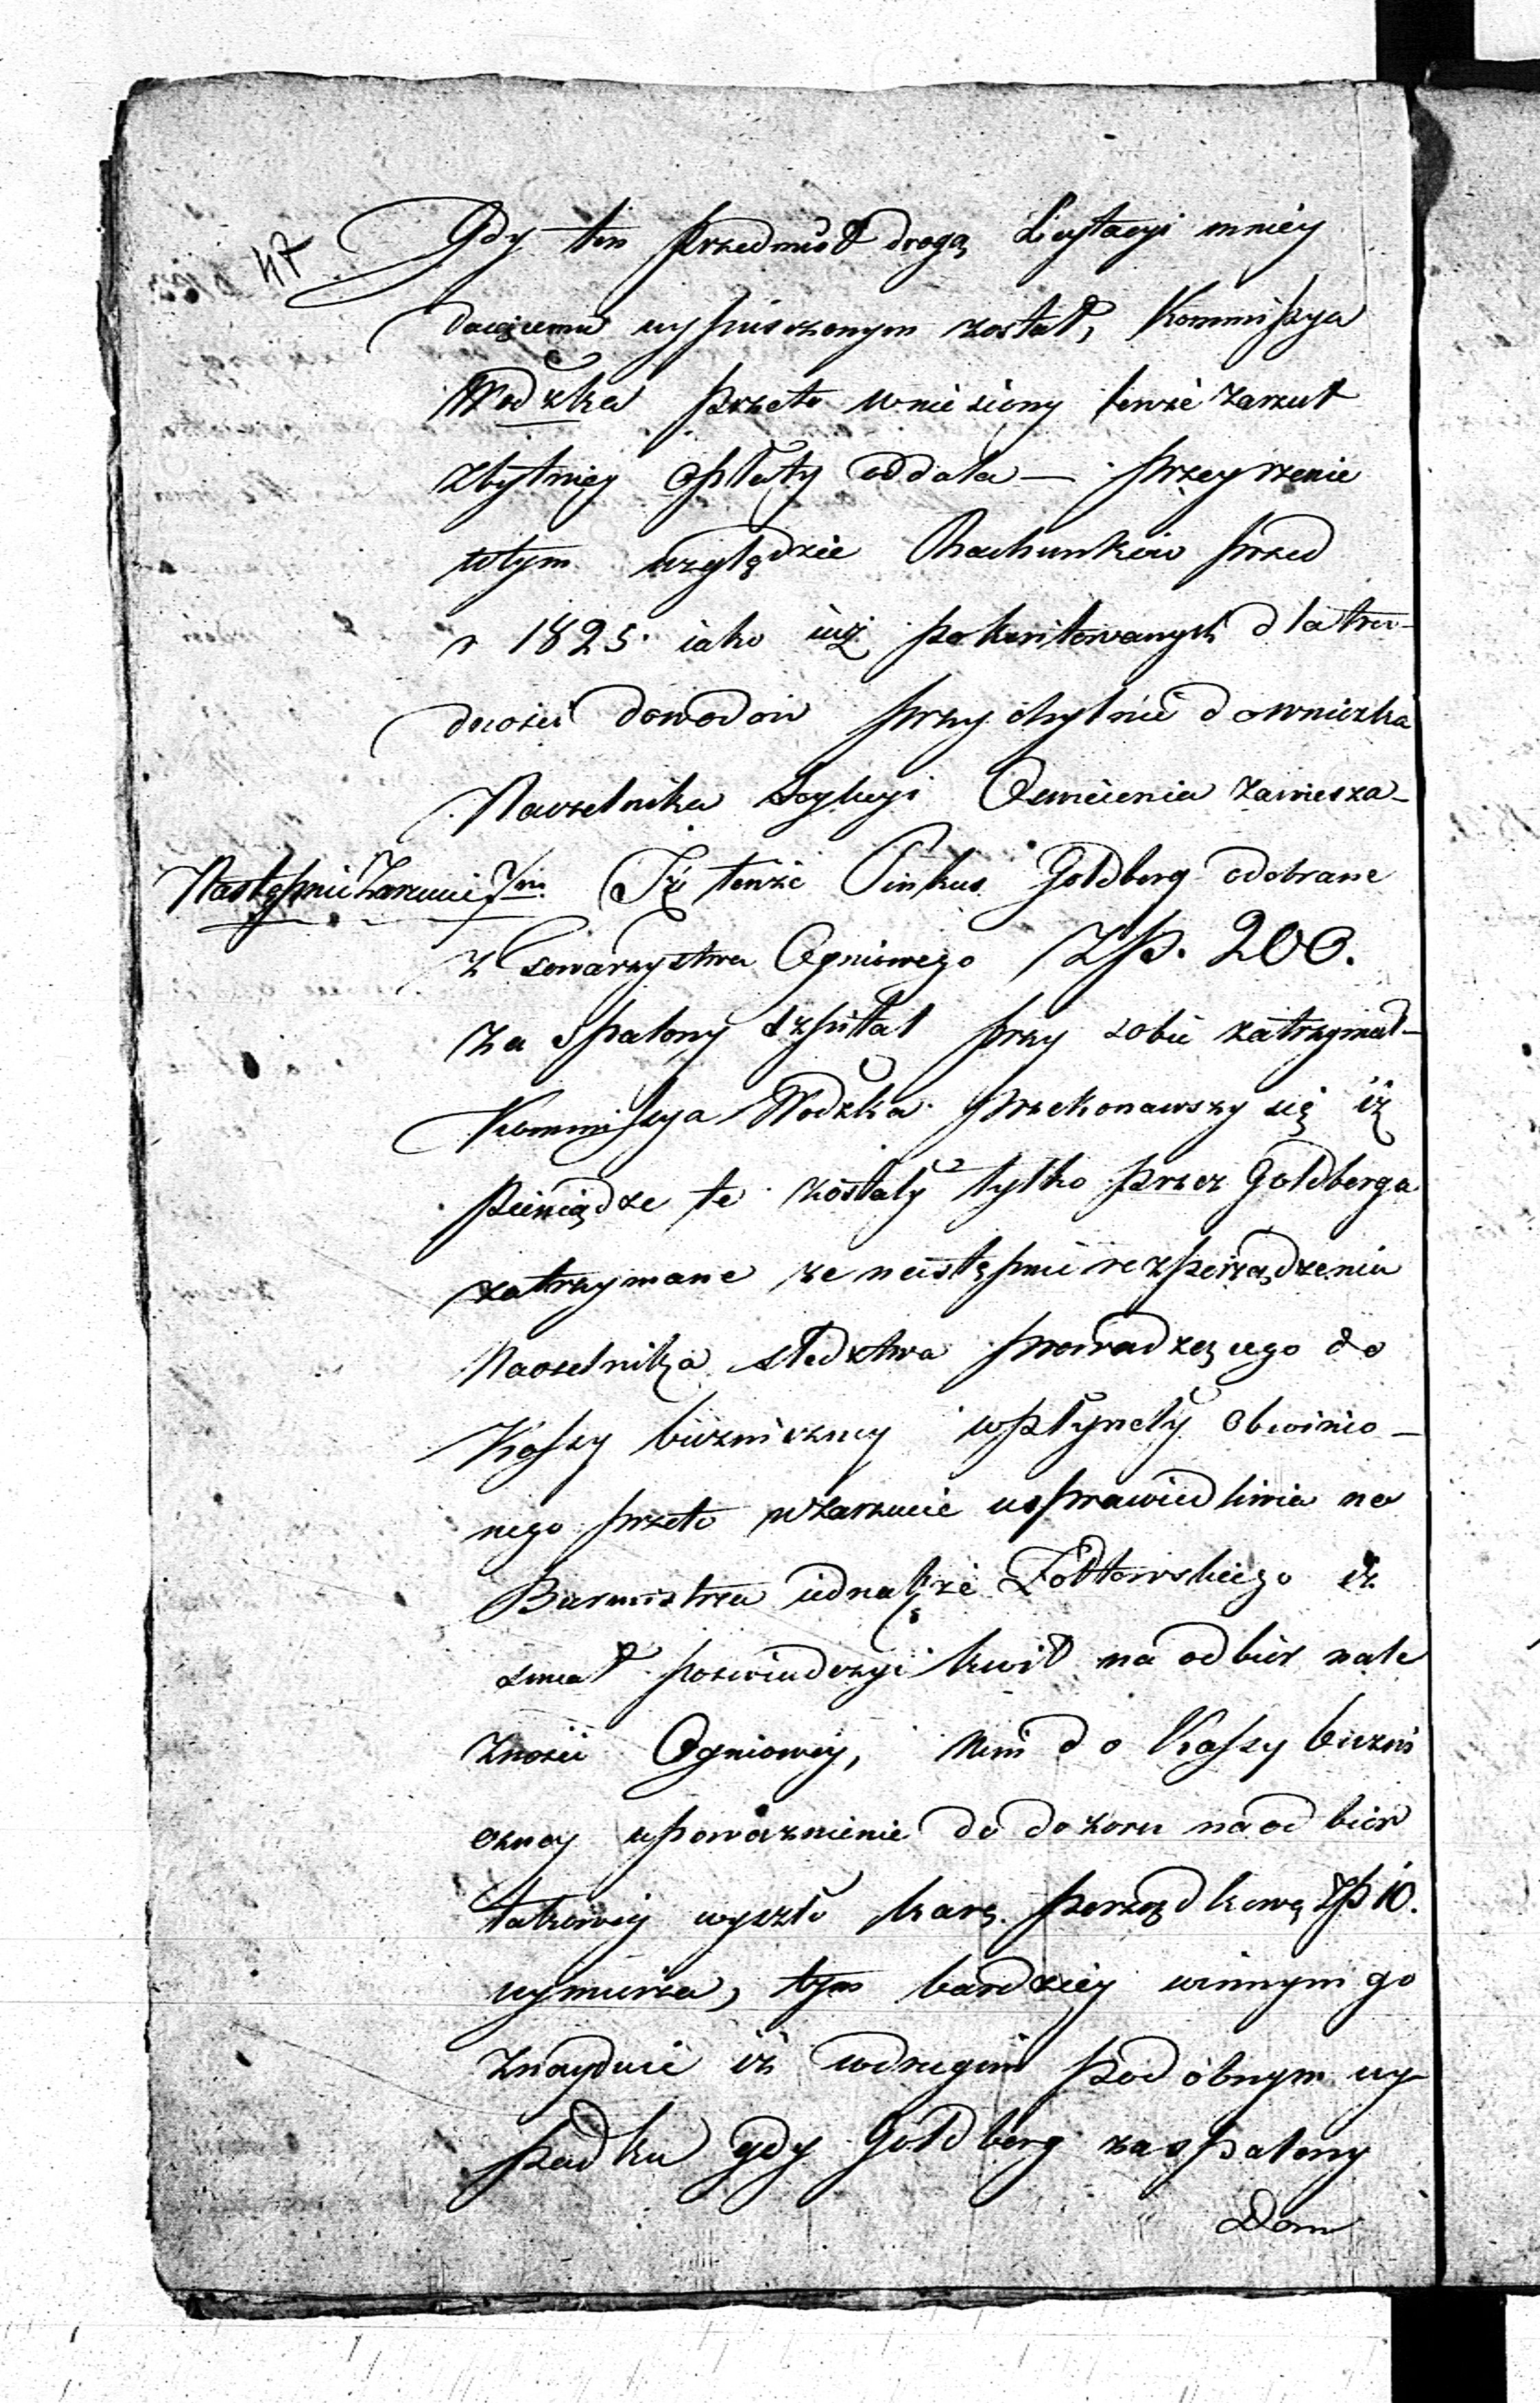 47
Gdy ten przedmiot drogą Licytacyi mniéy
daiącemu wypuszczonym został, Kommissya
Wodzka przeto wniesiony tenże zarzut
zbytniey opłaty oddala — przeyrzenie
wtym względzie Rachunków przed
r 1825. iako iuż pokwitowanych dla tru-
dności dowodów przychylnie do wniosku
Naczelnika Sekcyi Oswiecenia zawiesza —
Następnie Zarzucie 7m. Iż tenże Pinkus Goldberg odebrane
z Towarzystwa Ogniowego Zp. 200.
za spalony szpital przy sobie zatrzymał —
Kommissya Wodzka przekonawszy się iż
pieniądze te zostały tylko przez Goldberga
zatrzymane że następnie rozporządzenia
Naczelnika sledztwa prowadzącego do
Kassy bużniczney wpłyneły obwinio —
nego przeto wzarzucie usprawiedliwia na
Burmistrza iednakże Zołtowskiego iż
smiał poswiadczyć kwit na odbiór nale
żnosci Ogniowey, nim do Kassy bużni
czney upoważnienie do dozoru na odbiór
takowey wyszło karę porządkową Zp 10.
wymierza, tym bardziey winnym go
znayduie iż wdrugim podobnym wy-
padku gdy Goldberg za spalony
Dom